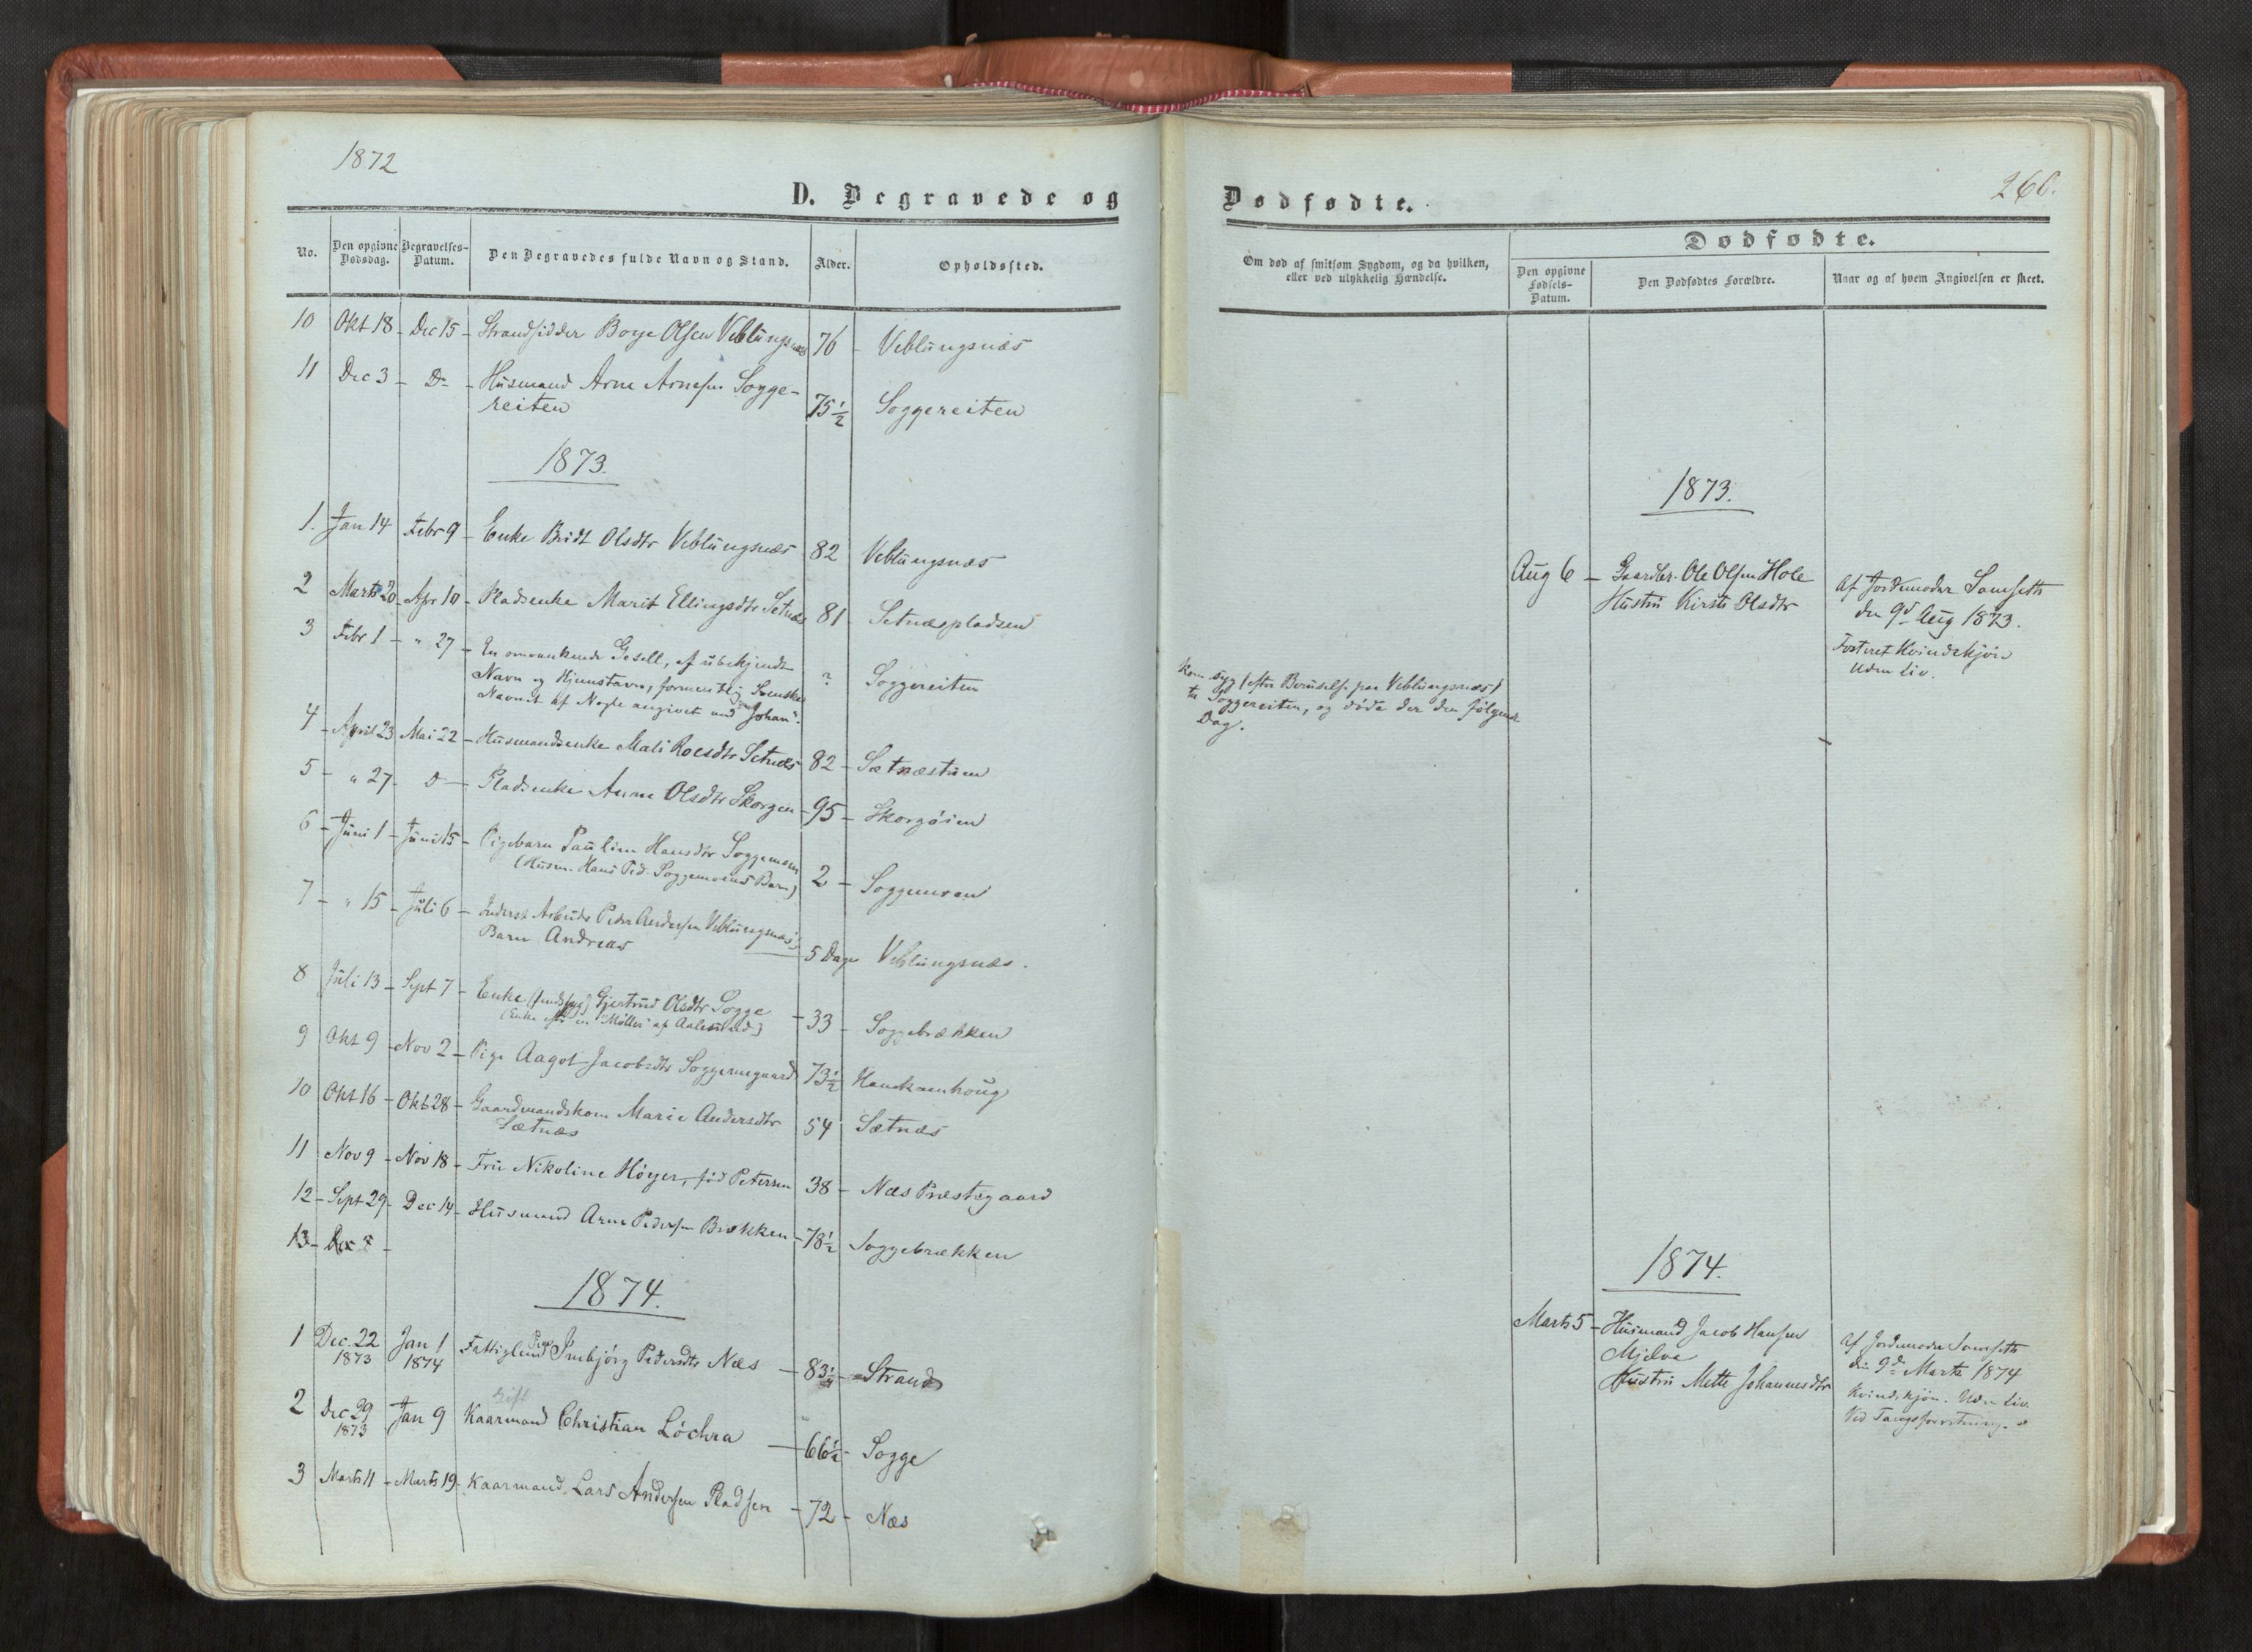 1872
D. Begravede og
No.
Den opgivne Dødsdag.
Begravelses-Datum.
Den Begravedes fulde Navn og Stand.
Alder.
Opholdssted.
10 Okt 18 - Dec 15 - Strandsidder Boye Olsen Veblungsnæs 76 - Veblungsnæs
11 Dec 3 - Do - Husmand Arne Arnesen Sogge-
reiten 75 1/2 Soggereiten
1873.
1. Jan 14 Febr 9 - Enke Bridt Olsdtr Veblungsnæs 82 Veblungsnæs
2 Marts 20 - Apr 10 - Pladsenke Marit Ellingsdtr Setnæs 81 - Setnæspladsen
3 Febr 1 - " 27 - En omvankende Gesell, af übekjendt
Navn og Hjemstavn, formentlig Svenske
Navnet af Nogle angivet ved "Johan". ? Soggereiten
4 - April 23 Mai 22 - Husmandsenke Mali Roesdtr Setnæs 82 - Sætnæstuen
5 - " 27 - D - Pladsenke Anne Olsdtr Skorgen - 95 - Skorgøien
6 - Juni 1 - Juni 15 - Pigebarn Pauline Hansdtr Soggemoen
(Husm. Hans Ped. Soggemoens Barn) 2 - Soggemoen
7 - " 15 - Juli 6 - Inderst Arbeider Peder Andersen Veblungsnæs's
Barn Andreas 5 Dage Veblungsnæs.
8 Juli 13 - Sept 7 - Enke Gjertrud Olsdtr Sogge
(Enke efter en "Møller" af Aalesund) - 33 - Soggebrækken
9 Okt 9 - Nov 2 - Pige Aagot Jacobsdtr Soggemegaard 73 1/2 Hanekamhoug
10 Okt 16 - Okt 28 - Gaardmandskone Marie Andersdtr
Sætnæs 54 Sætnæs
11 Nov 9 - Nov 18 - Fru Nikoline Høyer, fød Petersen 38 - Næs Præstegaard
12 - Sept 29 - Dec 14 - Husmand Arne Pedersen Brækken - 78 1/2 Soggebrækken
13 - Dec 8 -
1874.
1 Dec. 22 1873 Jan 1 1874 Fattiglem Pige Inebjørg Pedersdtr Næs - 83 1/4 - Strand
2 Dec 29 1873 Jan 9 Gift Kaarmand Christian Löchra - 66 1/2 - Sogge
3 Marts 11 - Marts 19 - Kaarmand Lars Andersen Pladsen - 72 - Næs
260.
Dødfødte.
Om død af smitsom Sygdom, og da hvilken,
eller ved ulykkelig Hændelse.
Dødfødte.
Den opgivne Fødsels-Datum.
Den Dødfødtes Forældre.
Naar og af hvem Angivelsen er skeet.
1873.
Aug 6 - Gaardbr. Ole Olsen Hole
Hustru Kirsti Olsdtr
Af Jordemoder Samseth
den 9d Aug 1873.
Kvindekjøn
Uden Liv.
Kom syg (efter Beruselse paa Veblungsnæs)
til Soggereiten, og døde der den følgende
Dag.
1874.
Marts 5 - Husmand Jacob Hansen
Mjelva
Hustru Mette Johannesdtr
Af Jordemoder Samseth
den 9de Marts 1874
Kvindekjøn. Uden Liv.
Ved Tangforløsning.